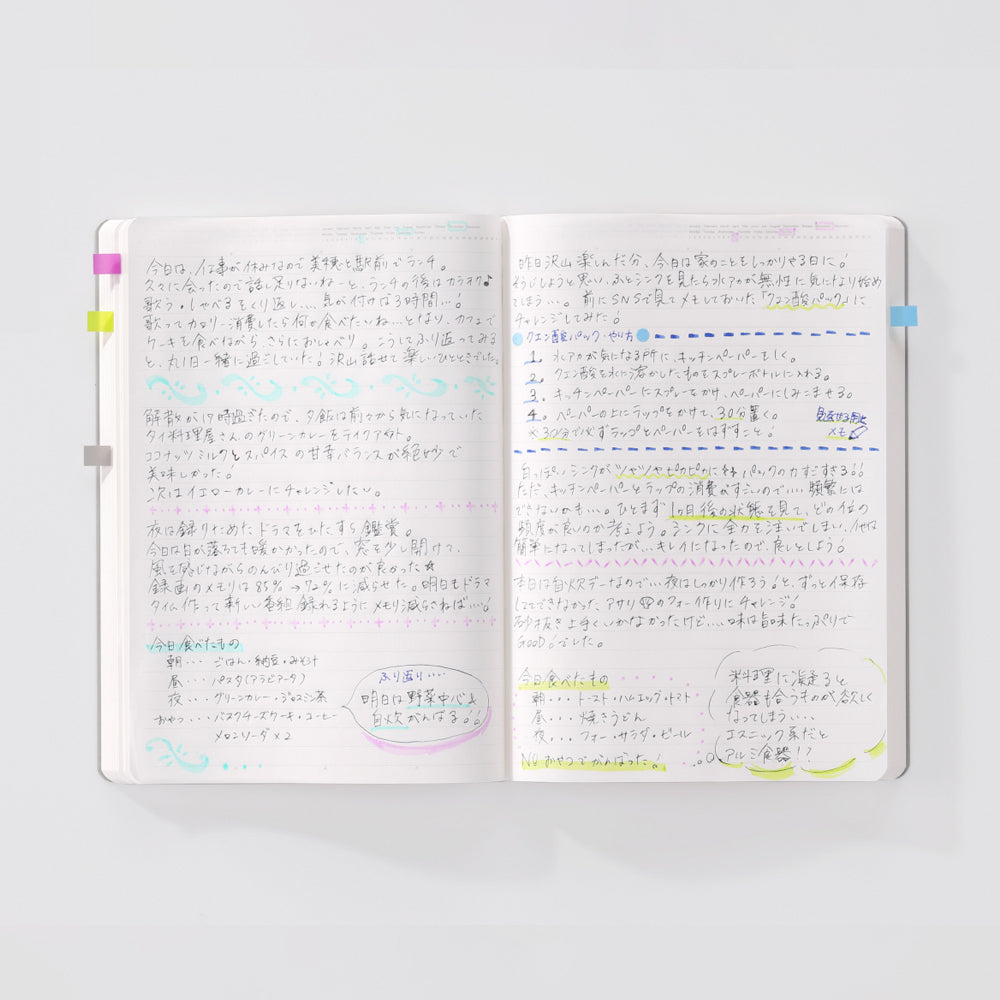 今日は、仕事が休みなので美穂と駅前でランチ。
久々に会ったので話し足りないねーと、ランチの後はカラオケ♪
歌う・しゃべるをくり返し…、気が付けば3時間…!
歌ってカロリー消費したら何か食べたいね…となり、カフェで
ケーキを食べながら、さらにおしゃべり。こうしてふり返ってみる
と、丸1日一緒に過ごしていた!沢山話せて楽しいひとときでした。
解散が17時過ぎたので、夕飯は前々から気になっていた
タイ料理屋さんのグリーンカレーをテイクアウト。
ココナッツミルクとスパイスの甘辛バランスが絶妙で
美味しかった!
次はイエローカレーにチャレンジしたい。
夜は録りためたドラマをひたすら鑑賞。
今日は日が落ちても暖かかったので、窓を少し開けて、
風を感じながらのんびり過ごせたのが良かった☆
録画のメモリは85%→72%に減らせた。明日もドラマ
タイム作って新しい番組録れるようにメモリ減らさねば…!
今日食べたもの
朝… ごはん・納豆・みそ汁
昼… パスタ(アラビアータ)
夜… グリーンカレー・ジャスミン茶
おやつ… バスクチーズケーキ・コーヒー
メロンソーダ×2
ふり返り…
明日は野菜中心&
自炊がんばる!!
昨日沢山楽しんだ分、今日は家のことをしっかりやる日に!
そうじしようと思い、ふとシンクを見たら水アカが無性に気になり始め
てしまい…。前にSNSで見てメモしておいた「クエン酸パック」に
チャレンジしてみた!
クエン酸パック・やり方
1. 水アカが気になる所に、キッチンペーパーをしく。
2. クエン酸を水に溶かしたものをスプレーボトルに入れる。
3. キッチンペーパーにスプレーをかけ、ペーパーにしみこませる。
4. ペーパーの上にラップをかけて、30分置く。
※30分で必ずラップとペーパーをはずすこと!
見返せる用に
メモ
白っぽいシンクがツヤツヤピカピカに☆パックの力すごすぎる!!
ただ、キッチンペーパーとラップの消費がすごいので…、頻繁には
できないかも…。ひとまず1ヶ月後の状態を見て、どの位の
頻度が良いのか考えよう。シンクに全力を注いでしまい、他は
簡単になってしまったが…キレイになったので、良しとしよう!
本日は自炊デーなので…夜はしっかり作ろう!と、ずっと保存
してできなかった、アサリのフォー作りにチャレンジ!
砂抜き上手くいかなかったけど…、味は旨味たっぷりで
GOOD!でした。
今日食べたもの
朝… トースト・ハムエッグ・トマト
昼… 焼きうどん
夜… フォー・サラダ・ビール
NOおやつでがんばった!
料理に凝ると
食器も合うものが欲しく
なってしまう…、
エスニック系だと
アルミ食器!?